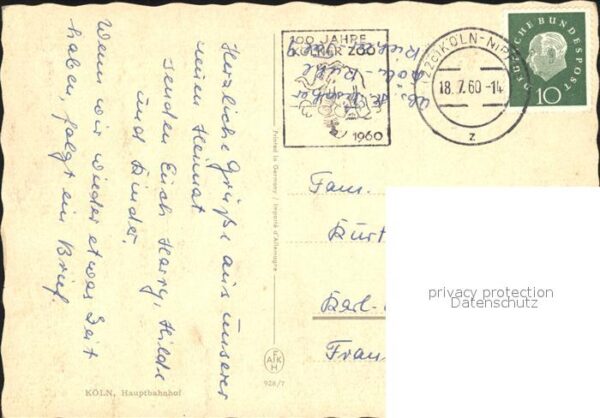 Herzliche Grüße aus unserer
neuen Heimat
senden Euch Harry, Hilde
und Kinder.
Wenn wir wieder etwas Zeit
haben, folgt ein Brief.
100 JAHRE
KÖLNER ZOO
1960
(22c) KÖLN-NIPPES
18.7.60-14
z
DEUTSCHE BUNDESPOST
10
Printed in Germany / Importé d'Allemagne
Fam.
Kurt
Karl-
Fran
privacy protection
Datenschutz
FAKH
928/7
KÖLN, Hauptbahnhof